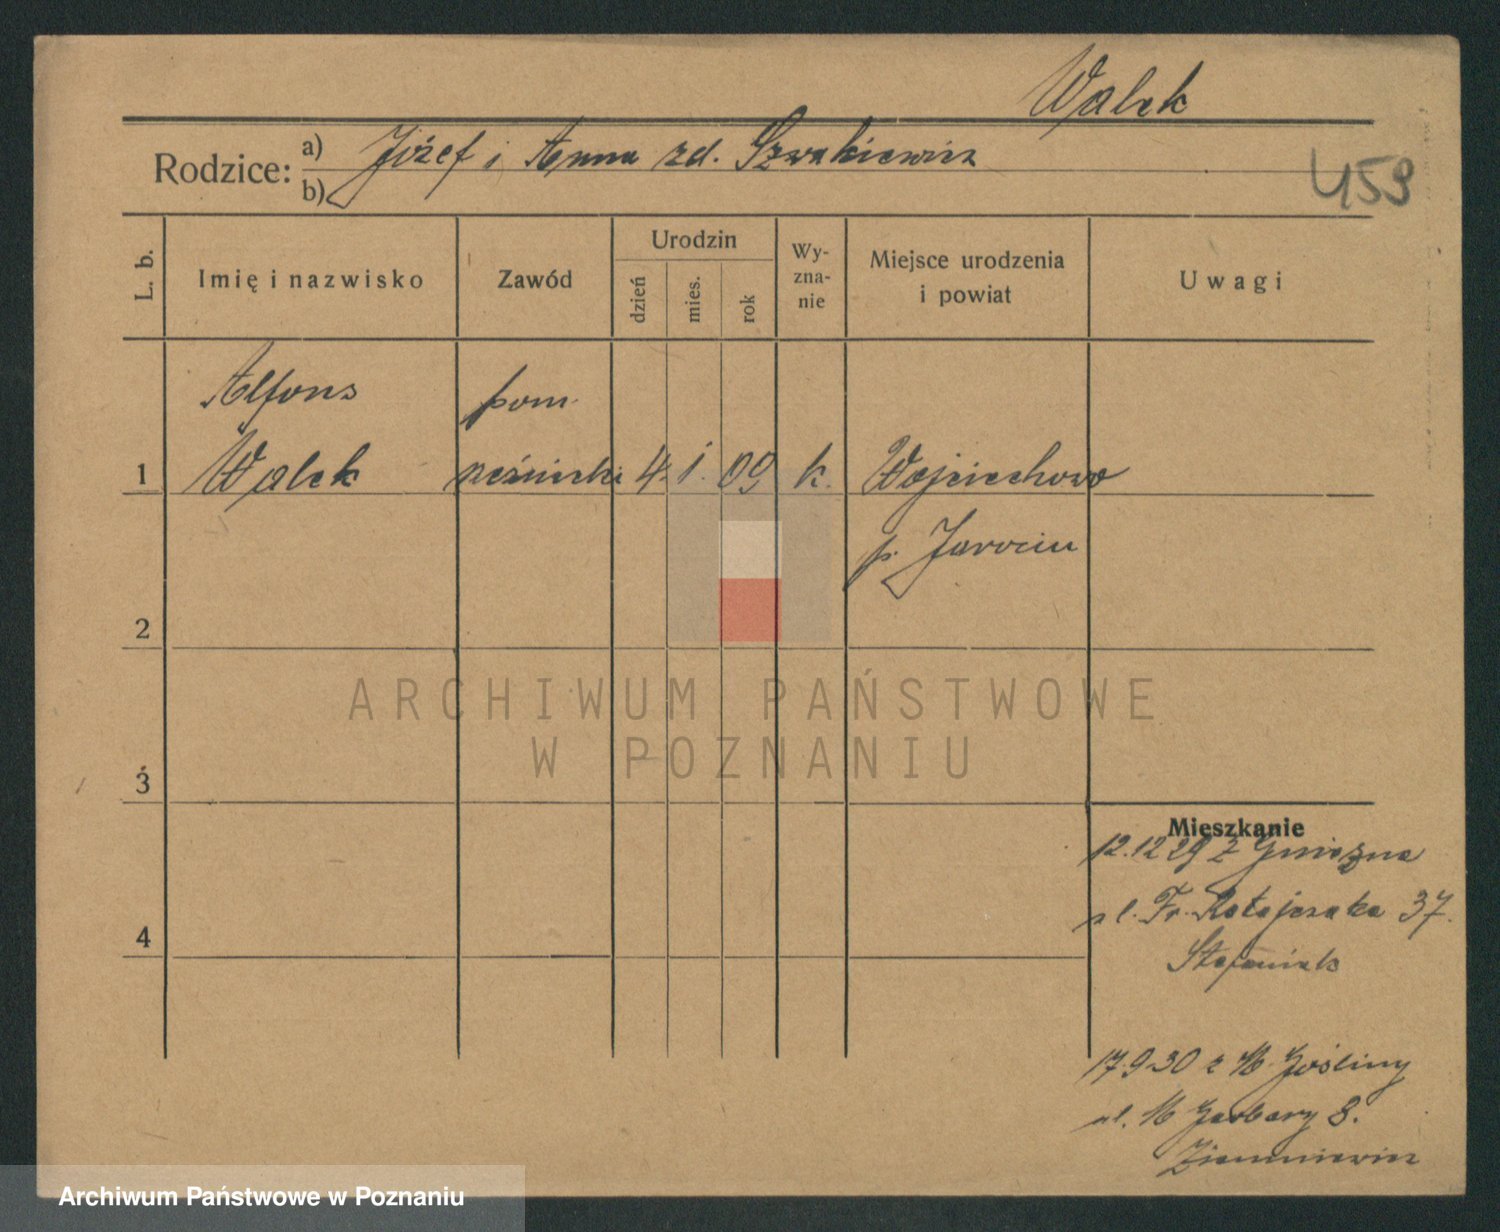 Walek
Rodzice: a) Józef i Anna zd. Szwakiewicz
b)
459
L. b.
Imię i nazwisko
Zawód
Urodzin
dzień
mies.
rok
Wy-
zna-
nie
Miejsce urodzenia
i powiat
Uwagi
Alfons pom.
1 Walek rzeźnicki 4. 1. 09 k. Wojciechowo
p. Jarocin
2
ARCHIWUM PAŃSTWOWE
W POZNANIU
3
Mieszkanie
12.12 29 z Gniezna
ul. Fr. Ratajczaka 37.
4
Stefaniak
17.9.30 z M. Gośliny
ul. M Garbary 8.
Ziemniewicz
Archiwum Państwowe w Poznaniu